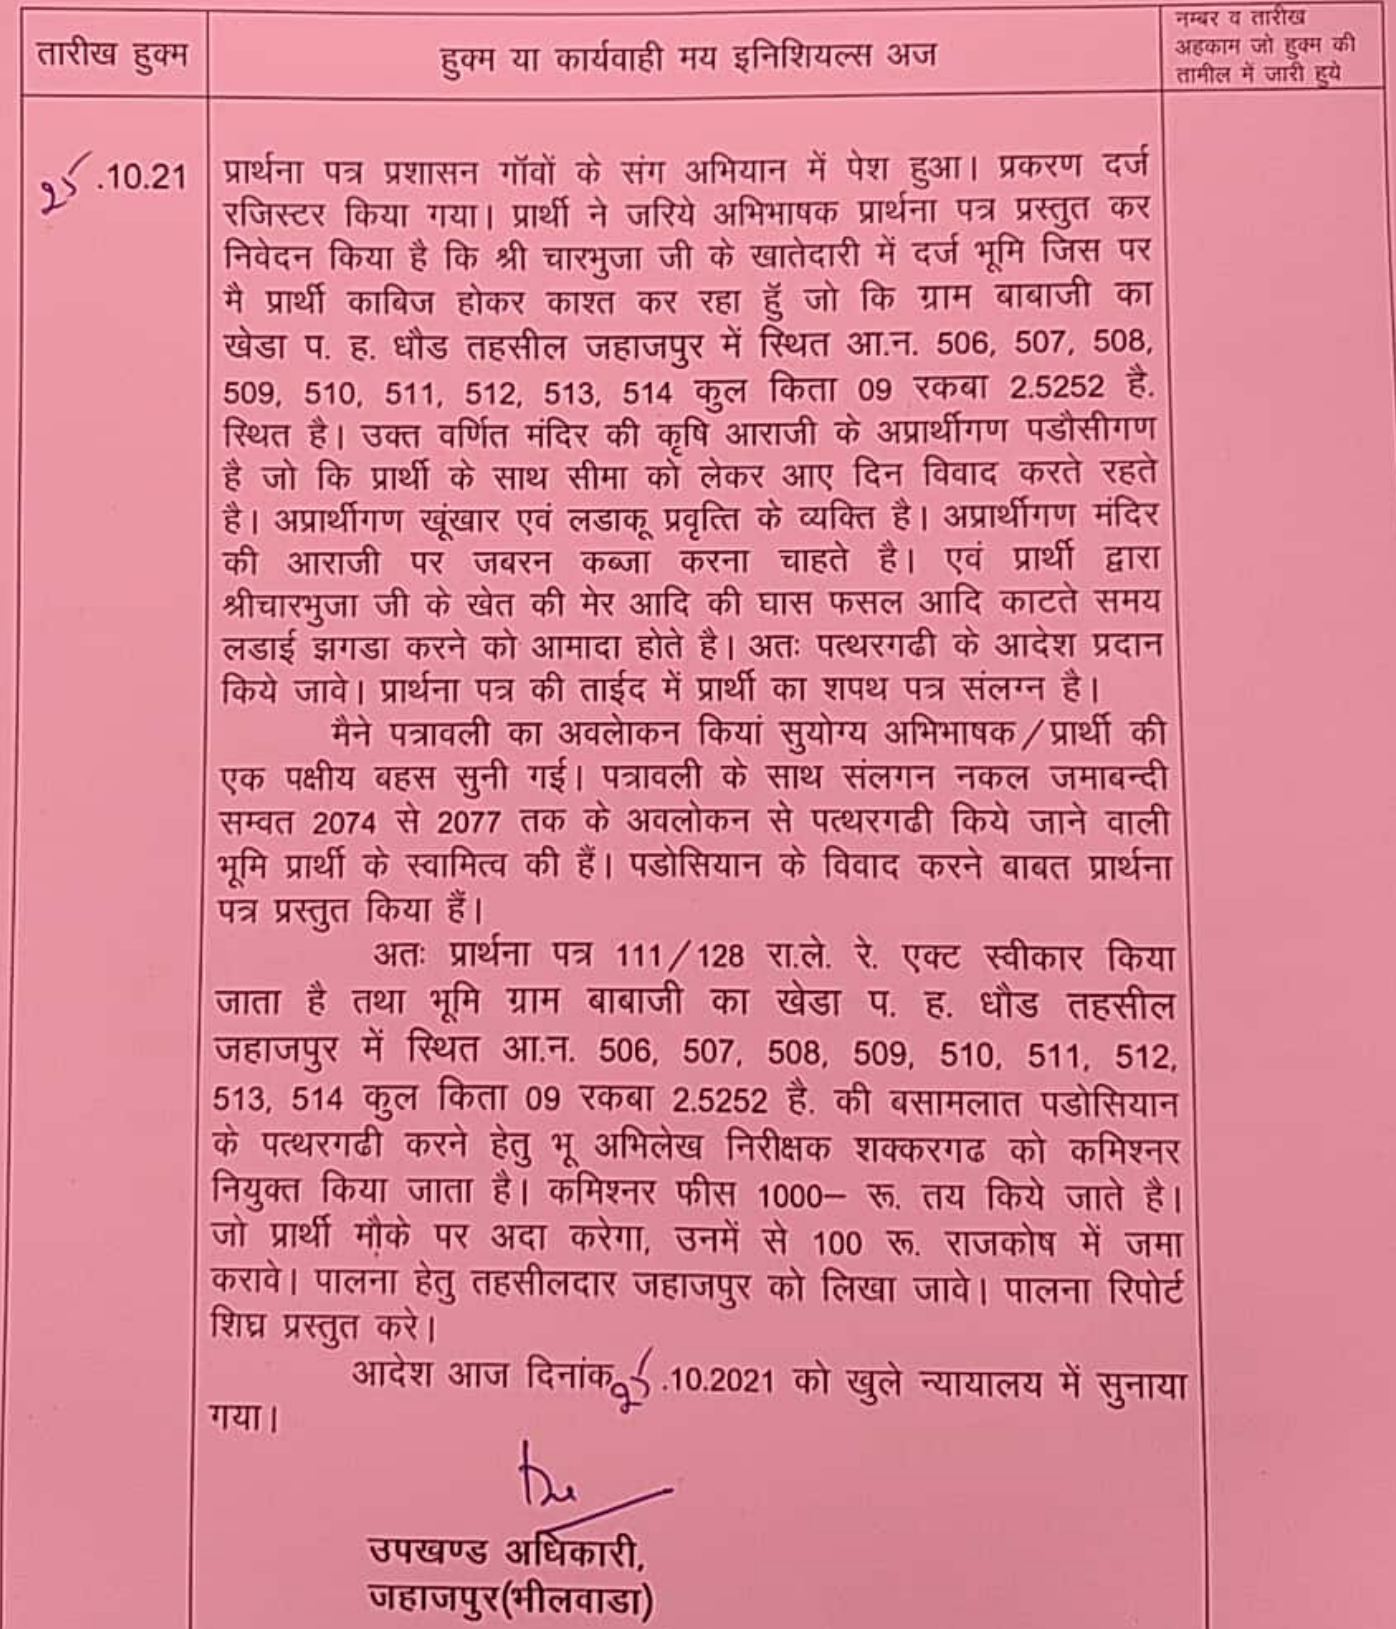 तारीख हुक्म
हुक्म या कार्यवाही मय इनिशियल्स अज
नम्बर व तारीख
अहकाम जो हुक्म की
तामील में जारी हुये
25 .10.21
प्रार्थना पत्र प्रशासन गॉवों के संग अभियान में पेश हुआ। प्रकरण दर्ज
रजिस्टर किया गया। प्रार्थी ने जरिये अभिभाषक प्रार्थना पत्र प्रस्तुत कर
निवेदन किया है कि श्री चारभुजा जी के खातेदारी में दर्ज भूमि जिस पर
मै प्रार्थी काबिज होकर काश्त कर रहा हूॅ जो कि ग्राम बाबाजी का
खेडा प. ह. धौड तहसील जहाजपुर में स्थित आ.न. 506, 507, 508,
509, 510, 511, 512, 513, 514 कुल किता 09 रकबा 2.5252 है.
स्थित है। उक्त वर्णित मंदिर की कृषि आराजी के अप्रार्थीगण पडौसीगण
है जो कि प्रार्थी के साथ सीमा को लेकर आए दिन विवाद करते रहते
है। अप्रार्थीगण खूंखार एवं लडाकू प्रवृत्ति के व्यक्ति है। अप्रार्थीगण मंदिर
की आराजी पर जबरन कब्जा करना चाहते है। एवं प्रार्थी द्वारा
श्रीचारभुजा जी के खेत की मेर आदि की घास फसल आदि काटते समय
लडाई झगडा करने को आमादा होते है। अतः पत्थरगढी के आदेश प्रदान
किये जावे। प्रार्थना पत्र की ताईद में प्रार्थी का शपथ पत्र संलग्न है।
मैने पत्रावली का अवलोकन कियां सुयोग्य अभिभाषक/प्रार्थी की
एक पक्षीय बहस सुनी गई। पत्रावली के साथ संलगन नकल जमाबन्दी
सम्वत 2074 से 2077 तक के अवलोकन से पत्थरगढी किये जाने वाली
भूमि प्रार्थी के स्वामित्व की हैं। पडोसियान के विवाद करने बाबत प्रार्थना
पत्र प्रस्तुत किया हैं।
अतः प्रार्थना पत्र 111/128 रा.ले. रे. एक्ट स्वीकार किया
जाता है तथा भूमि ग्राम बाबाजी का खेडा प. ह. धौड तहसील
जहाजपुर में स्थित आ.न. 506, 507, 508, 509, 510, 511, 512,
513, 514 कुल किता 09 रकबा 2.5252 है. की बसामलात पडोसियान
के पत्थरगढी करने हेतु भू अभिलेख निरीक्षक शक्करगढ को कमिश्नर
नियुक्त किया जाता है। कमिश्नर फीस 1000– रू. तय किये जाते है।
जो प्रार्थी मौके पर अदा करेगा, उनमें से 100 रू. राजकोष में जमा
करावे। पालना हेतु तहसीलदार जहाजपुर को लिखा जावे। पालना रिपोर्ट
शिघ्र प्रस्तुत करे।
आदेश आज दिनांक 25 .10.2021 को खुले न्यायालय में सुनाया
गया।
उपखण्ड अधिकारी,
जहाजपुर(भीलवाडा)